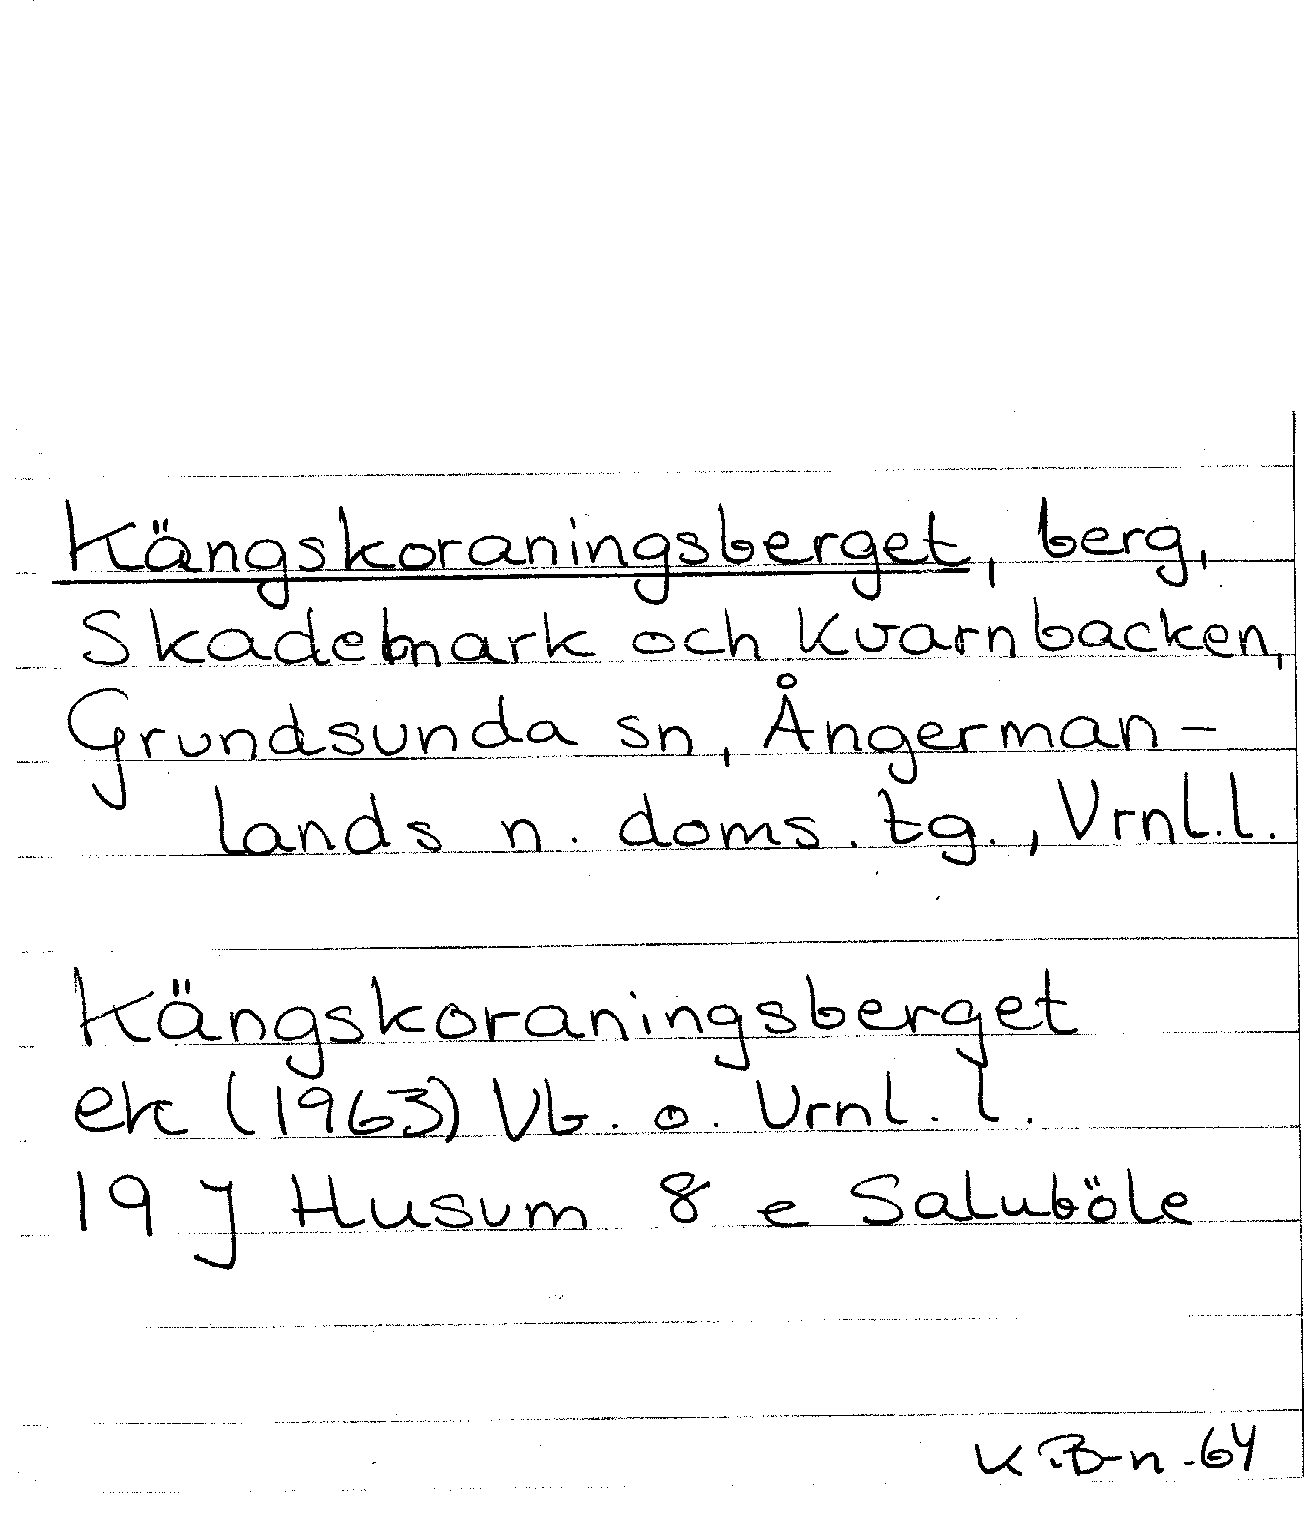 Kängskoraningsberget, berg,
Skademark och Kvarnbacken,
Grundsunda sn, Ångerman-
lands n. doms. tg., Vrnl.l.
Kängskoraningsberget
ek (1963) Vb. o. Vrnl. l.
19 J Husum 8 e Saluböle
K.B-n -64